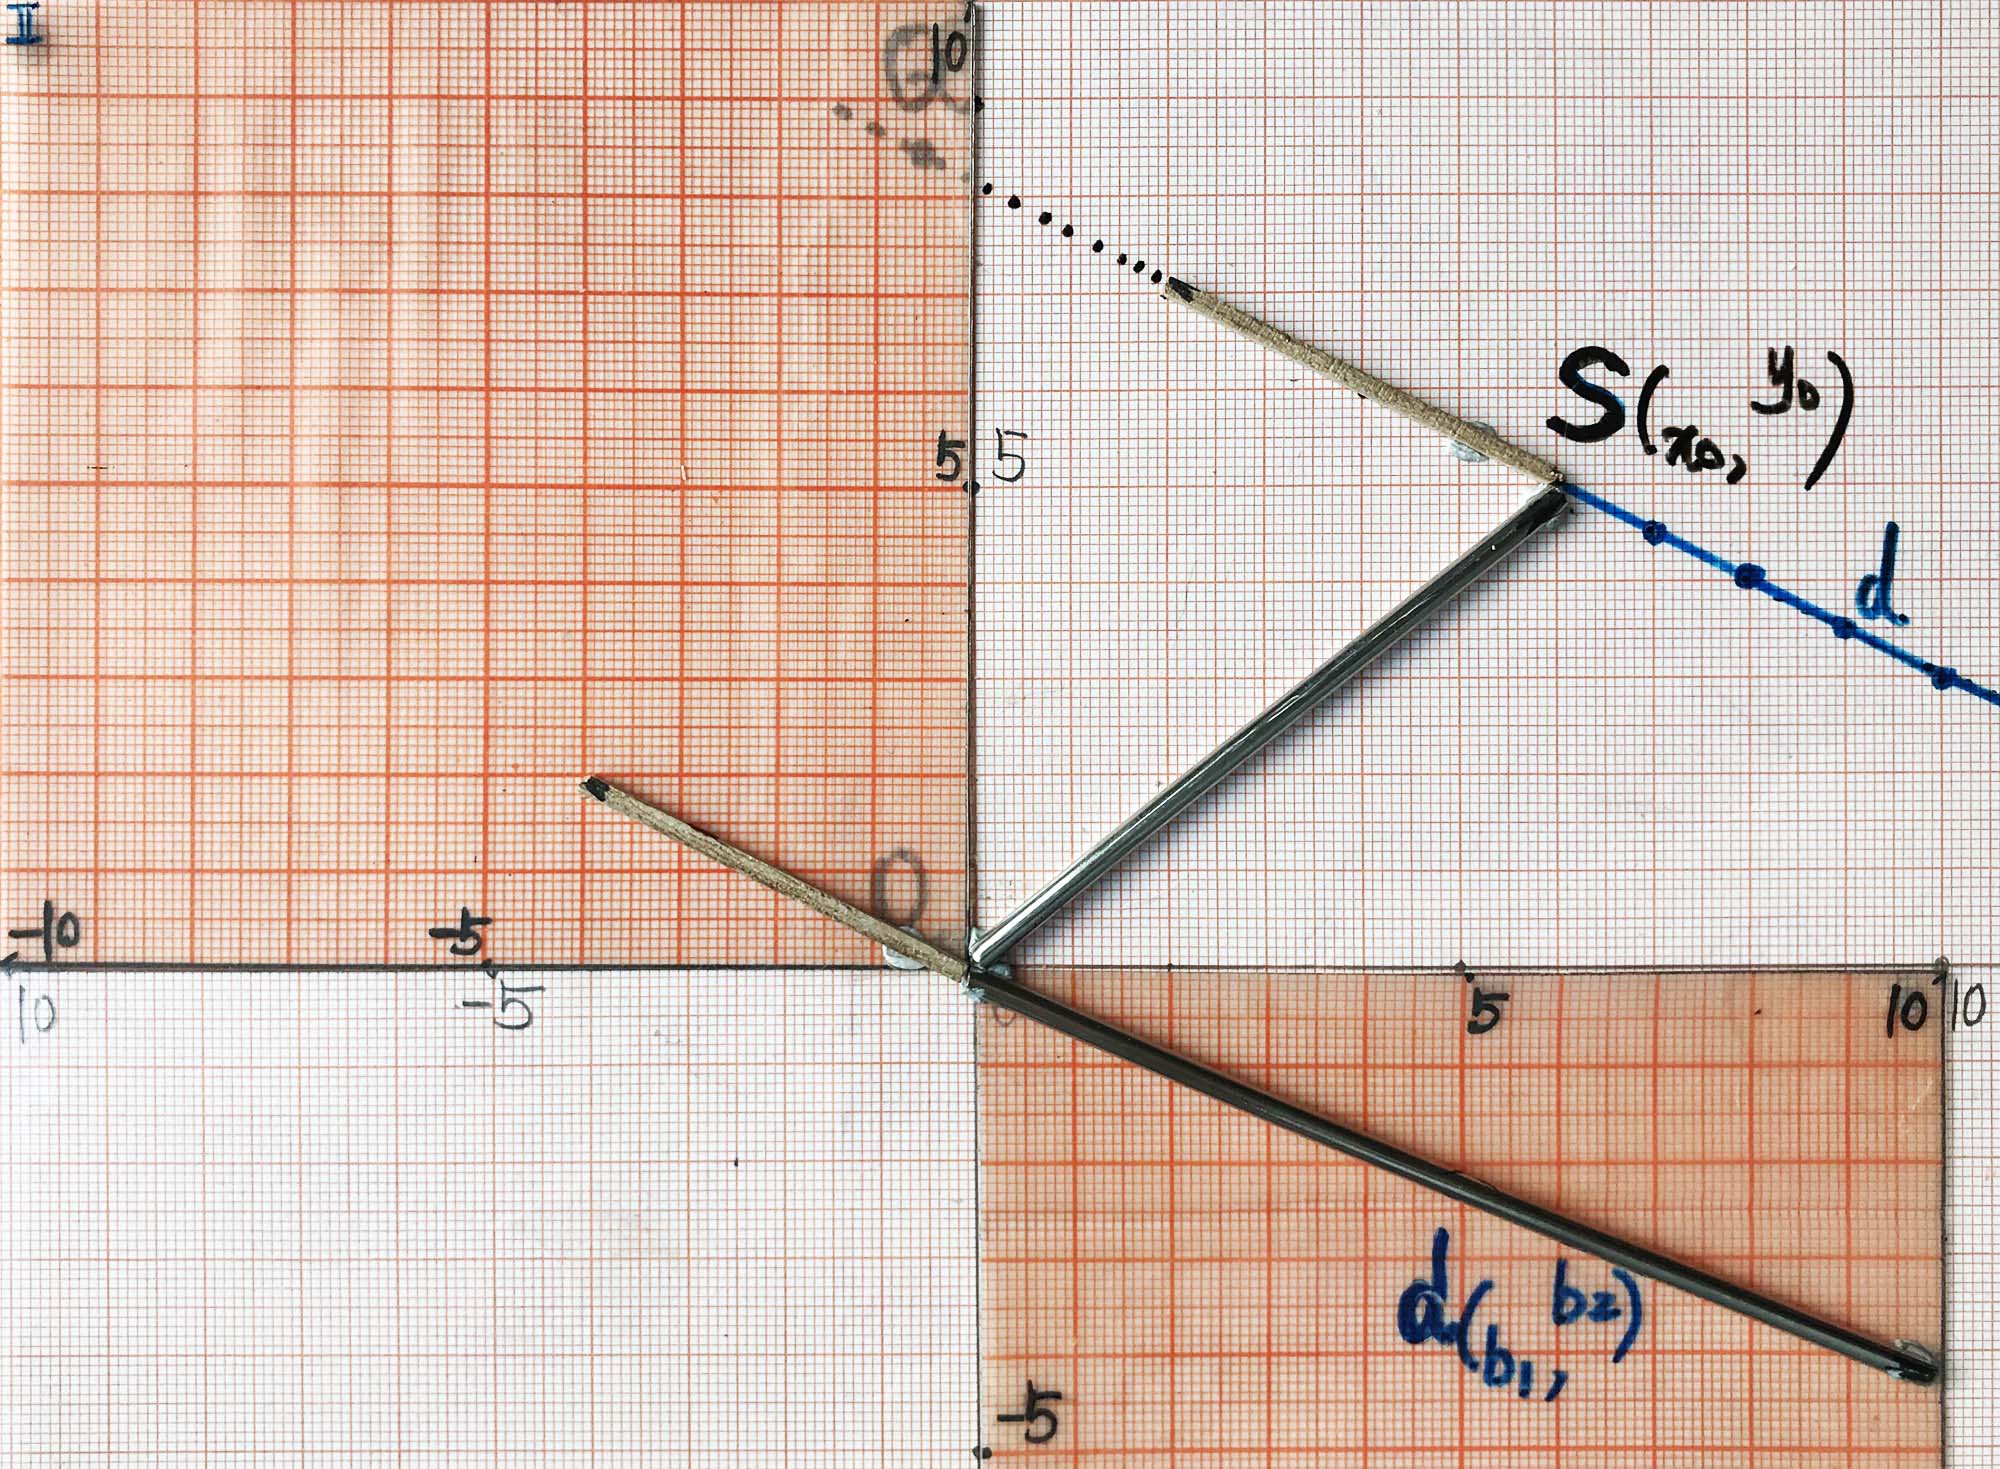 II
10
5 5
S(x₀, y₀)
d.
O
-10
-5
10
-5
5
10 10
d.(b₁, b₂)
-5